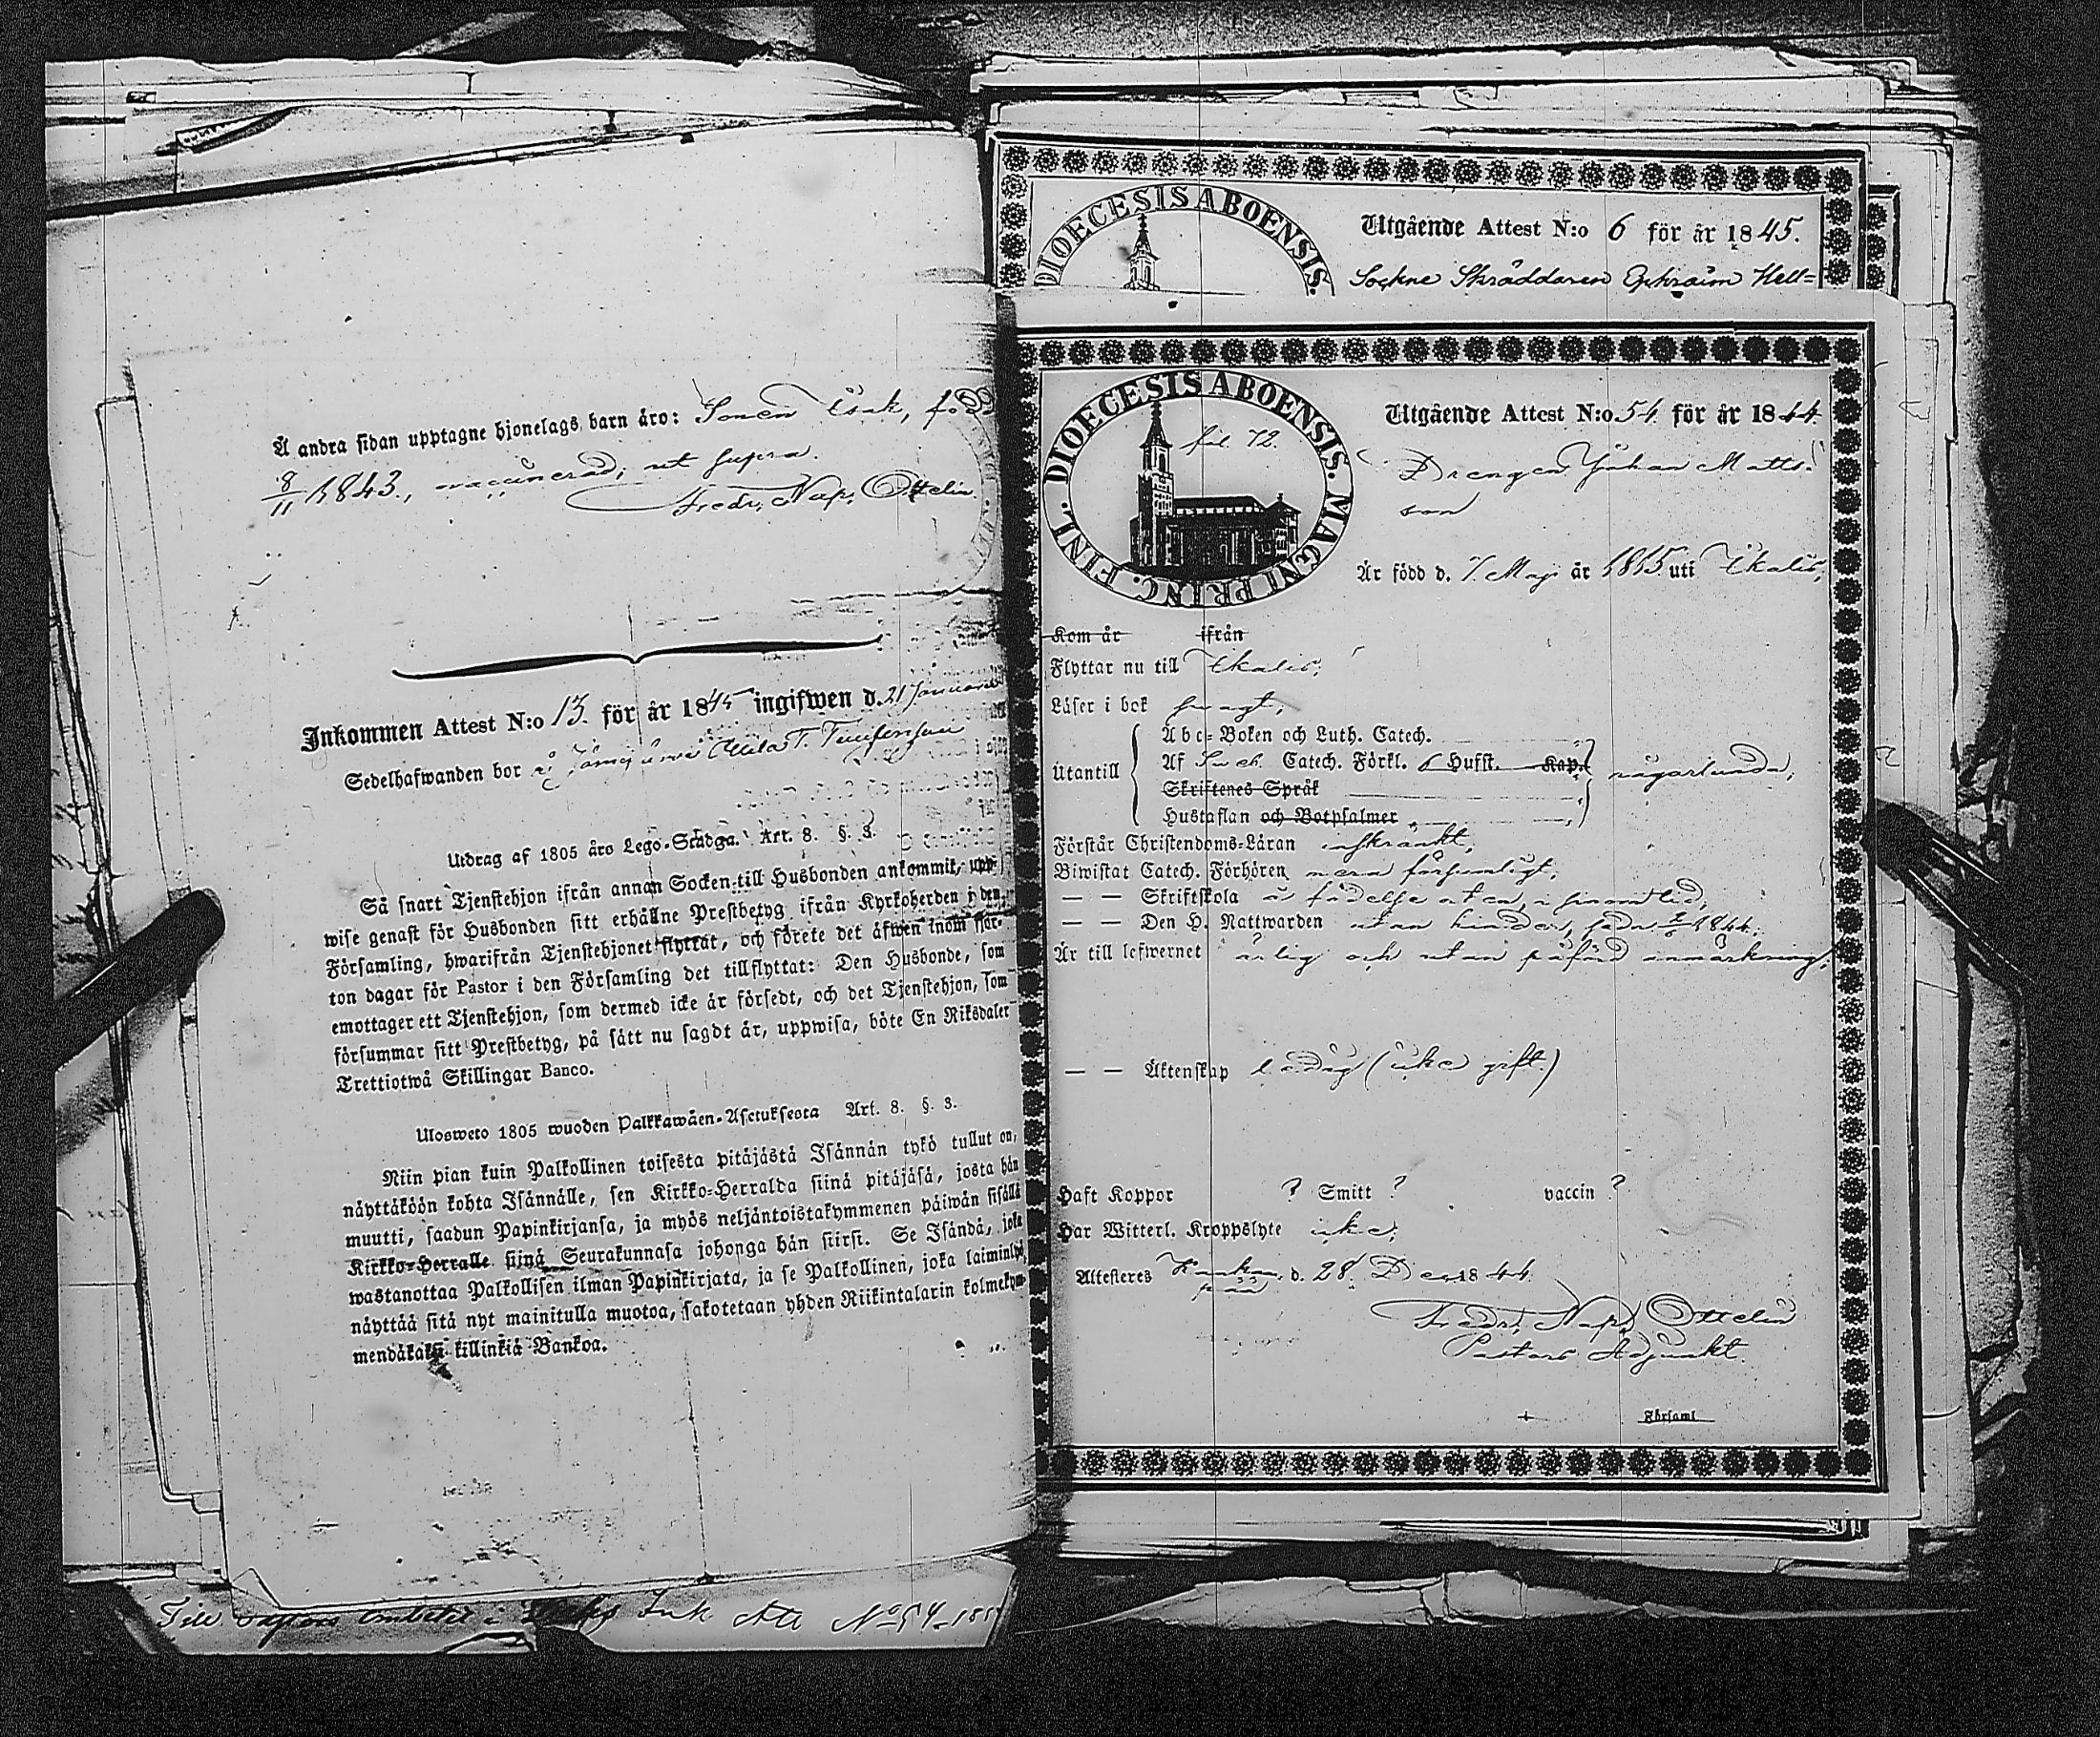 Å andra sidan upptagne hjonelags barn åro: Sonen Isak, född
8/11 1843., vaccinerad; ut supra.
Fredr. Nap. Ottelin
Inkommen Attest N:o 13. för år 1845 ingifwen d. 21 Januarii
Sedelhafwanden bor
Utdrag af 1805 års Lego-Stadga. Art. 8. §. 3.
Så snart Tjenstehjon ifrån annan Socken till Husbonden ankommit, upp-
wise genast för Husbonden sitt erhållne Prestbetyg ifrån Kyrkoherden i den
Församling, hwarifrån Tjenstehjonet flyttat, och förete det äfwen inom fjor-
ton dagar för Pastor i den Församling det tillflyttat: Den Husbonde, som
emottager ett Tjenstehjon, som dermed icke är försedt, och det Tjenstehjon, som
försummar sitt Prestbetyg, på sätt nu sagdt är, uppwisa, böte En Riksdaler
Trettiotwå Skillingar Banco.
Ulosweto 1805 wuoden Palkkawåen-Asetuksesta Art. 8. §. 3.
Niin pian kuin Palkollinen toisesta pitäjästä Isännän tykö tullut on,
näyttäköön kohta Isännälle, sen Kirkko-Herralda siinä pitäjäsä, josta hän
muutti, saadun Papinkirjansa, ja myös neljäntoistakymmenen päiwän sisällä
Kirkko-Herralle siinä Seurakunnasa johonga hän siirsi. Se Isändä, joka
wastanottaa Palkollisen ilman Papinkirjata, ja se Palkollinen, joka laiminlyö
näyttää sitä nyt mainitulla muotoa, sakotetaan yhden Riikintalarin kolmekym-
mendäkaksi killinkiä Bankoa.
Till Pastors Embetet i Ink Att No 54 18
DIOECESIS ABOENSIS.
Utgående Attest N:o 6 för år 1845.
Sockne Skräddaren Ephraim Hell=
DIOECESIS ABOENSIS. MAGNI PRINC. FINL.
fol. 72.
Utgående Attest N:o 54 för år 1844.
Drengen Johan Matts-
son
Är född d. 7. Maji år 1815. uti Ikalis,
Kom år ifrån
Flyttar nu till Ikalis,
Läser i bok svagt,
Utantill
Abc-Boken och Luth. Catech.
Af Catech. Förkl. 6 Hufst. Kap. någorlunda,
Skriftenes Språk
Hustaflan och Botpsalmer
Förstår Christendoms-Läran inskränkt,
Biwistat Catech. Förhören mera försumligt,
— — Skriftskola
— — Den H. Nattwarden utan hinder, 1844.
Är till lefwernet ärlig och utan påförd anmärkning,
— — Äktenskap ledig (icke gift.)
Haft Koppor ? Smitt ? vaccin ?
Har Witterl. Kroppslyte icke;
Attesteres d. 28. Dec. 1844.
Fredr. Nap. Ottelin
Pastors Adjunkt.
Församl